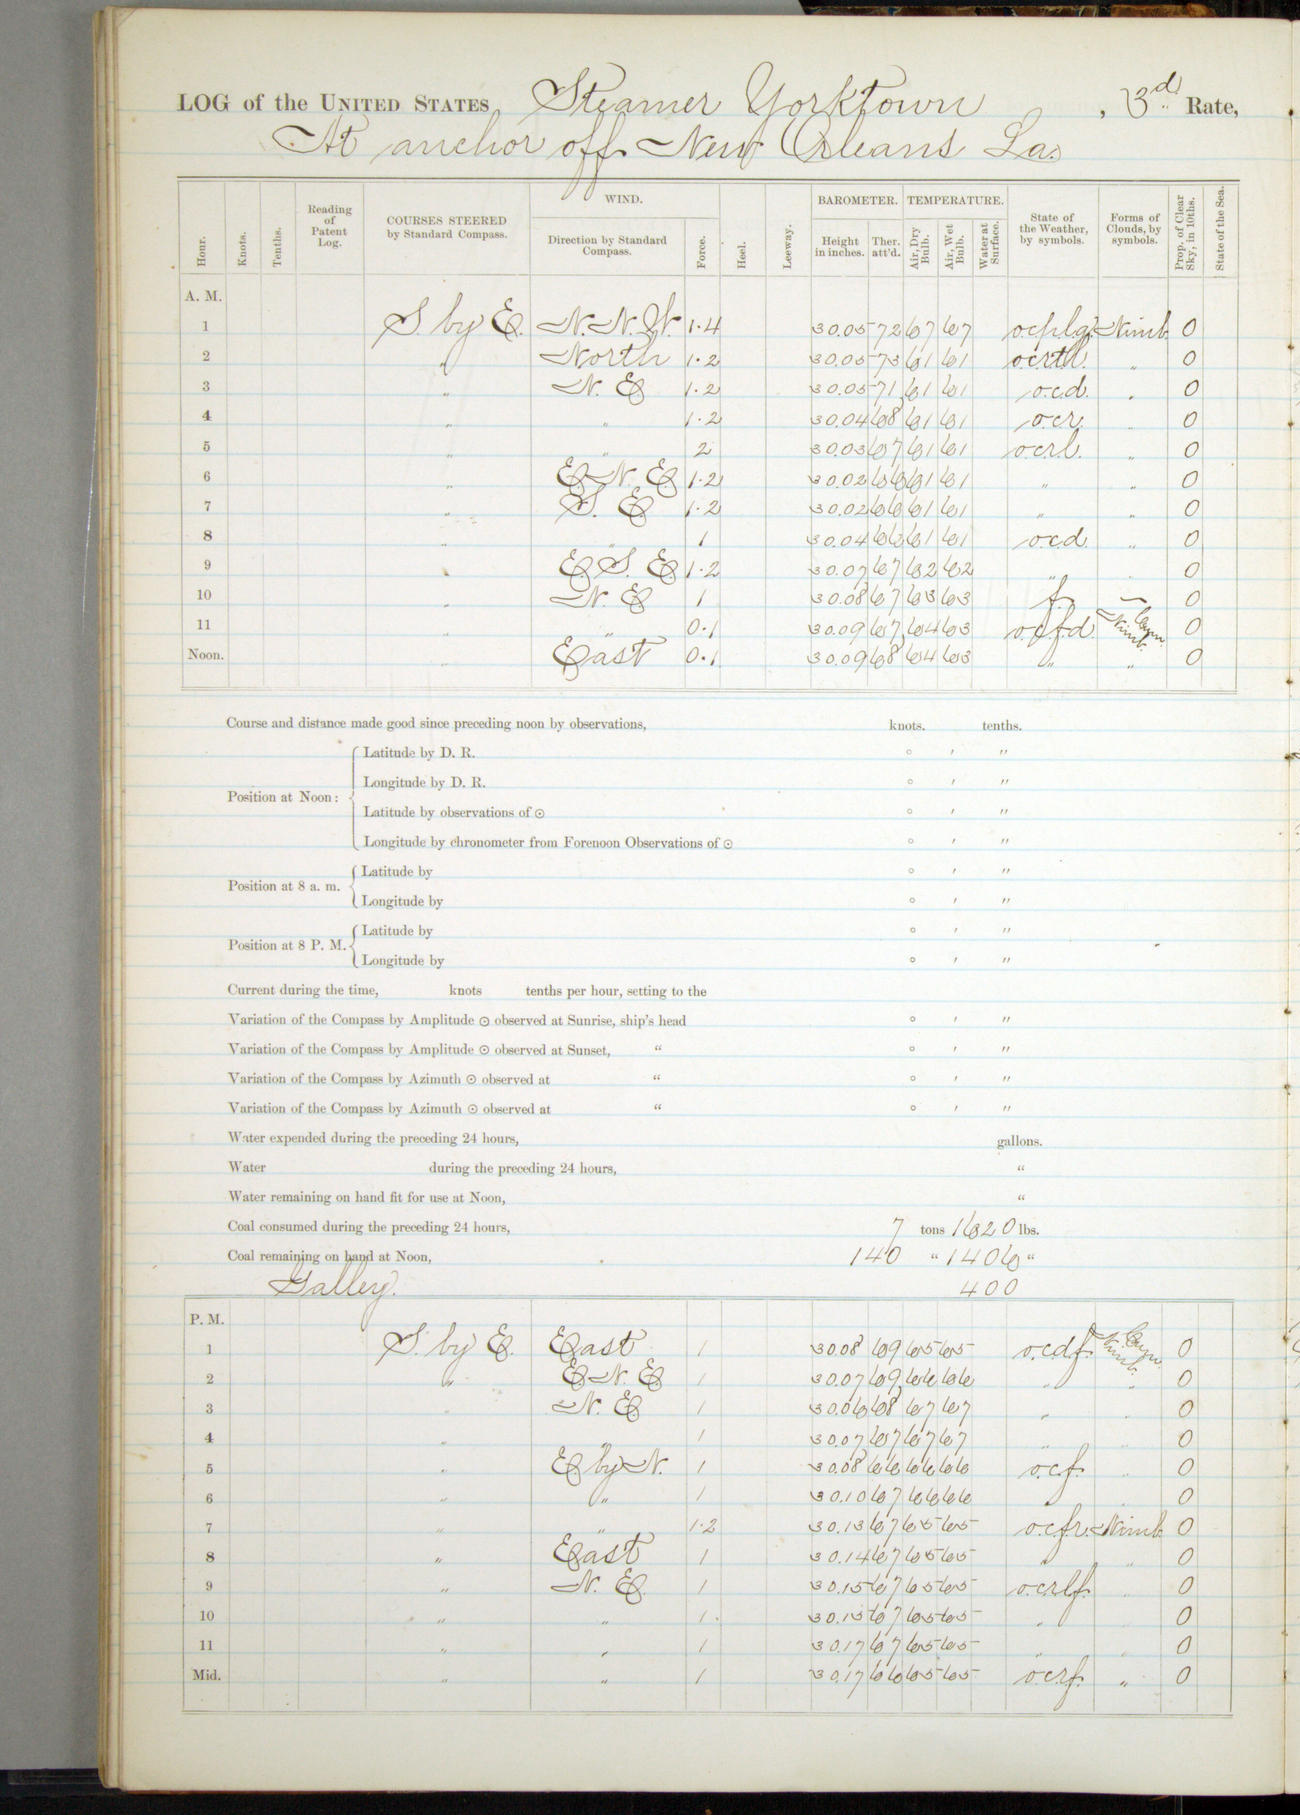 LOG of the UNITED STATES Steamer Yorktown, 3rd Rate,
At anchor off New Orleans La.
Hour. Knots. Tenths. Reading of Patent Log. COURSES STEERED by Standard Compass. WIND. Direction by Standard Compass. Force. Heel. Leeway. BAROMETER. Height in inches. Ther. att'd. TEMPERATURE. Air, Dry Bulb. Air, Wet Bulb. Water at Surface. State of the Weather, by symbols. Forms of Clouds, by symbols. Prop. of Clear Sky, in 10ths. State of the Sea.
A. M.
1 S. by E. N.N.W. 1.4 30.05 72 67 67 Nimb. 0
2 " North 1.2 30.05 73 61 61 " 0
3 " N. E 1.2 30.05 71 61 61 o.c.d. " 0
4 " " 1.2 30.04 68 61 61 o.c.r. " 0
5 " " 2 30.03 67 61 61 o.c.r.l. " 0
6 " E.N.E. 1.2 30.02 66 61 61 " " 0
7 " S. E. 1.2 30.02 66 61 61 " " 0
8 " " 1 30.04 66 61 61 o.c.d. " 0
9 " E.S.E 1.2 30.07 67 62 62 " " 0
10 " N. E 1 30.08 67 63 63 f. — 0
11 " 0.1 30.09 67 64 63 o.c.f.d. Cum. Nimb. 0
Noon. East 0.1 30.09 68 64 63 " " 0
Course and distance made good since preceding noon by observations, knots. tenths.
Position at Noon: Latitude by D. R. ° ′ ″
Longitude by D. R. ° ′ ″
Latitude by observations of ⊙ ° ′ ″
Longitude by chronometer from Forenoon Observations of ⊙ ° ′ ″
Position at 8 a. m. Latitude by ° ′ ″
Longitude by ° ′ ″
Position at 8 P. M. Latitude by ° ′ ″
Longitude by ° ′ ″
Current during the time, knots tenths per hour, setting to the
Variation of the Compass by Amplitude ⊙ observed at Sunrise, ship's head ° ′ ″
Variation of the Compass by Amplitude ⊙ observed at Sunset, " ° ′ ″
Variation of the Compass by Azimuth ⊙ observed at " ° ′ ″
Variation of the Compass by Azimuth ⊙ observed at " ° ′ ″
Water expended during the preceding 24 hours, gallons.
Water during the preceding 24 hours, "
Water remaining on hand fit for use at Noon, "
Coal consumed during the preceding 24 hours, 7 tons 1620 lbs.
Coal remaining on hand at Noon, 140 " 1406 "
Galley. 400
P. M.
1 S. by E. East 1 30.08 69 65 65 o.c.d.f. Cum. Nimb. 0
2 " E.N.E. 1 30.07 69 66 66 " " 0
3 " N. E. 1 30.06 68 67 67 " " 0
4 " " 1 30.07 67 67 67 " " 0
5 " E by N. 1 30.08 66 66 66 o.c.f. " 0
6 " " 1 30.10 67 66 66 " " 0
7 " " 1.2 30.13 67 65 65 o.c.f.r. Nimb 0
8 " East 1 30.14 67 65 65 " " 0
9 " N. E. 1 30.15 67 65 65 o.c.r.l.f. " 0
10 " " 1. 30.15 67 65 65 " " 0
11 " " 1 30.17 67 65 65 " " 0
Mid. " " 1 30.17 66 65 65 o.c.r.f. " 0